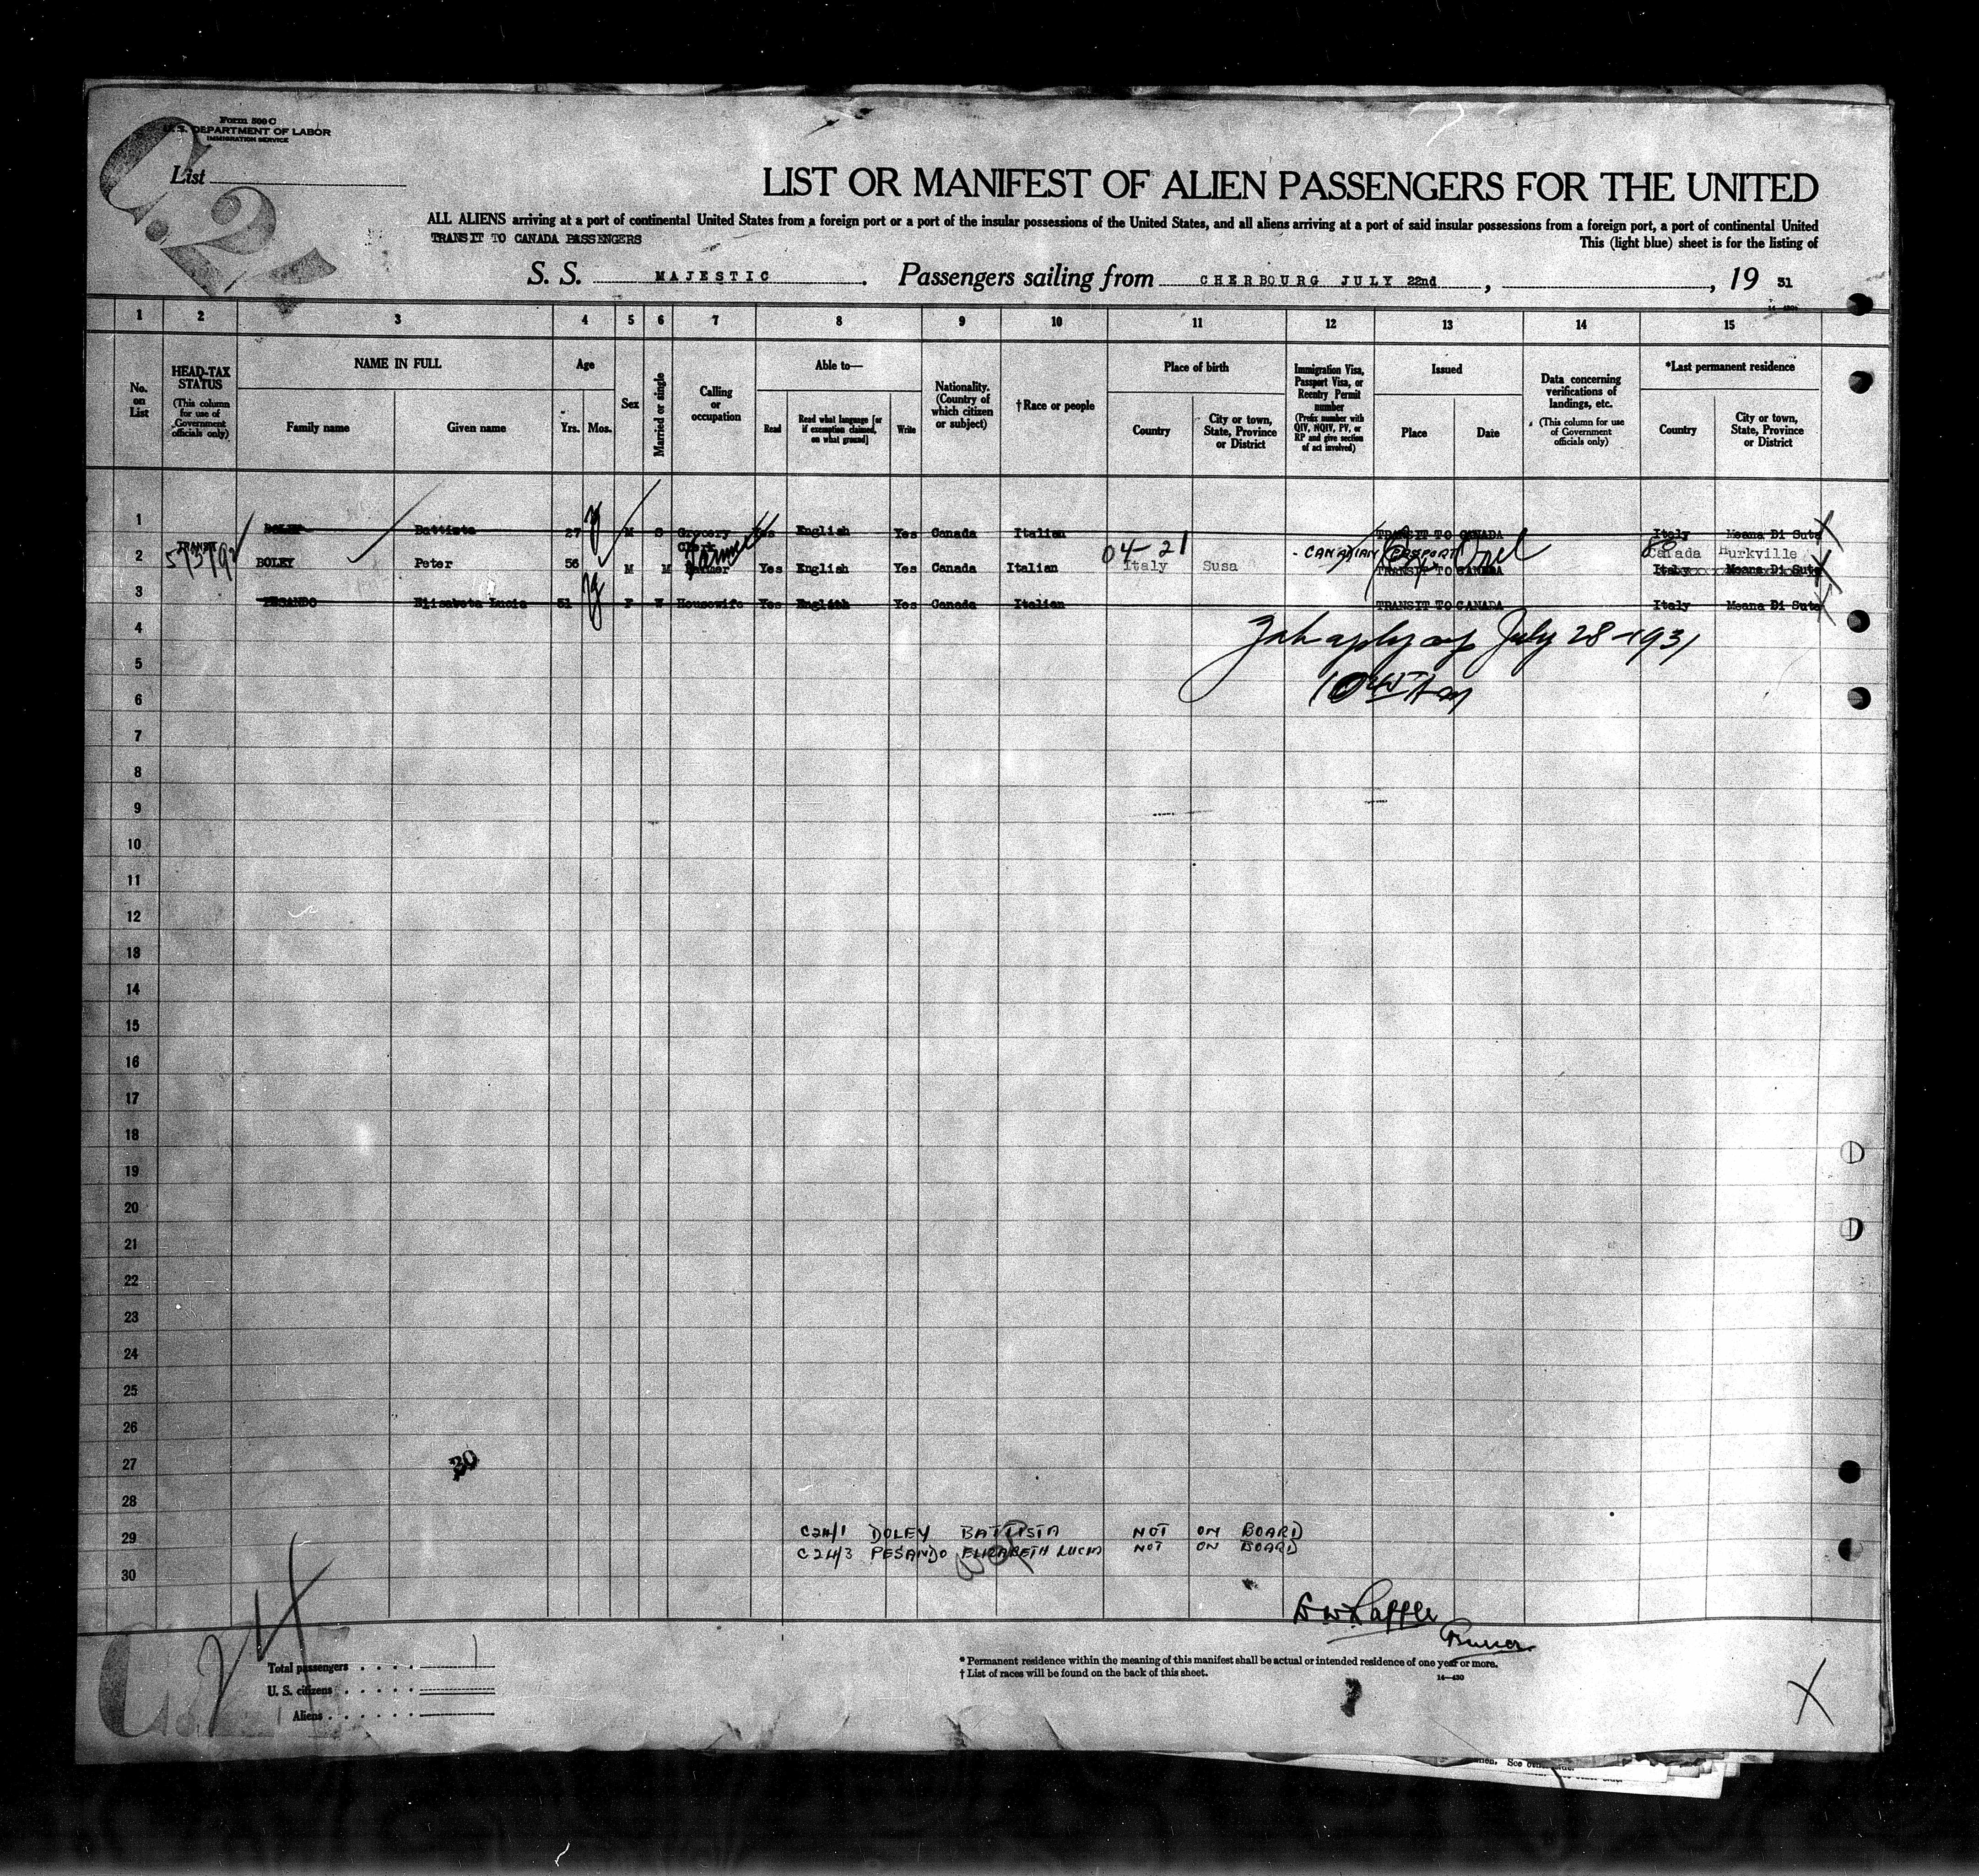 Form 500 C
U. S. DEPARTMENT OF LABOR
IMMIGRATION SERVICE
List
C.2
LIST OR MANIFEST OF ALIEN PASSENGERS FOR THE UNITED
ALL ALIENS arriving at a port of continental United States from a foreign port or a port of the insular possessions of the United States, and all aliens arriving at a port of said insular possessions from a foreign port, a port of continental United
TRANSIT TO CANADA PASSENGERS
This (light blue) sheet is for the listing of
S. S. MAJESTIC . Passengers sailing from CHERBOURG JULY 22nd , , 19 31
1 2 3 4 5 6 7 8 9 10 11 12 13 14 15
No. on List
HEAD-TAX STATUS (This column for use of Government officials only)
NAME IN FULL
Family name
Given name
Age
Yrs. Mos.
Sex
Married or single
Calling or occupation
Able to—
Read
Read what language [or if exemption claimed, on what ground]
Write
Nationality. (Country of which citizen or subject)
†Race or people
Place of birth
Country
City or town, State, Province or District
Immigration Visa, Passport Visa, or Reentry Permit number (Prefix number with QIV, NQIV, PV, or RP and give section of act involved)
Issued
Place
Date
Data concerning verifications of landings, etc. (This column for use of Government officials only)
*Last permanent residence
Country
City or town, State, Province or District
1 Battista 27 M S Grocery Clerk Yes English Yes Canada Italian TRANSIT TO CANADA Italy Meana Di Susa
04-21 - CANADIAN PASSPORT Canada
2 TRANSIT BOLEY Peter 56 M M Farmer Yes English Yes Canada Italian Italy Susa TRANSIT TO CANADA Italy Meana Di Susa
3 PESANDO Elisabeta Lucia 51 F W Housewife Yes English Yes Canada Italian TRANSIT TO CANADA Italy Meana Di Susa
4
July 28-1931
5
6
7
8
9
10
11
12
13
14
15
16
17
18
19
20
21
22
23
24
25
26
27
30
28
29 C24/1 DOLEY BATTISTA NOT ON BOARD
C24/3 PESANDO ELIZABETH LUCIA NOT ON BOARD
30
C. 24
Total passengers . . . . 1
U. S. citizens . . . . .
Aliens . . . . . .
* Permanent residence within the meaning of this manifest shall be actual or intended residence of one year or more.
† List of races will be found on the back of this sheet.
14—430